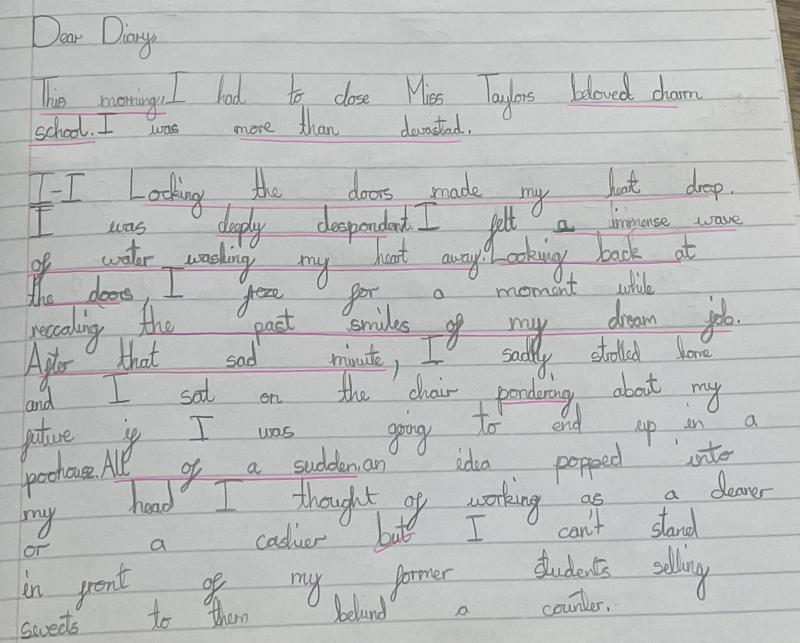 Dear Diary,
This morning, I had to close Miss Taylors beloved charm
school. I was more than devastad.
I-I Locking the doors made my heat drop.
I was deeply despondent. I felt a immense wave
of water washing my heart away. Looking back at
the doors, I froze for a moment while
reccaling the past smiles of my dream job.
After that sad minute, I sadly strolled home
and I sat on the chair pondering about my
future if I was going to end up in a
poohouse. All of a sudden, an idea popped into
my head I thought of working as a cleaner
or a cashier but I can't stand
in front of my former students selling
sweets to them behind a counter.